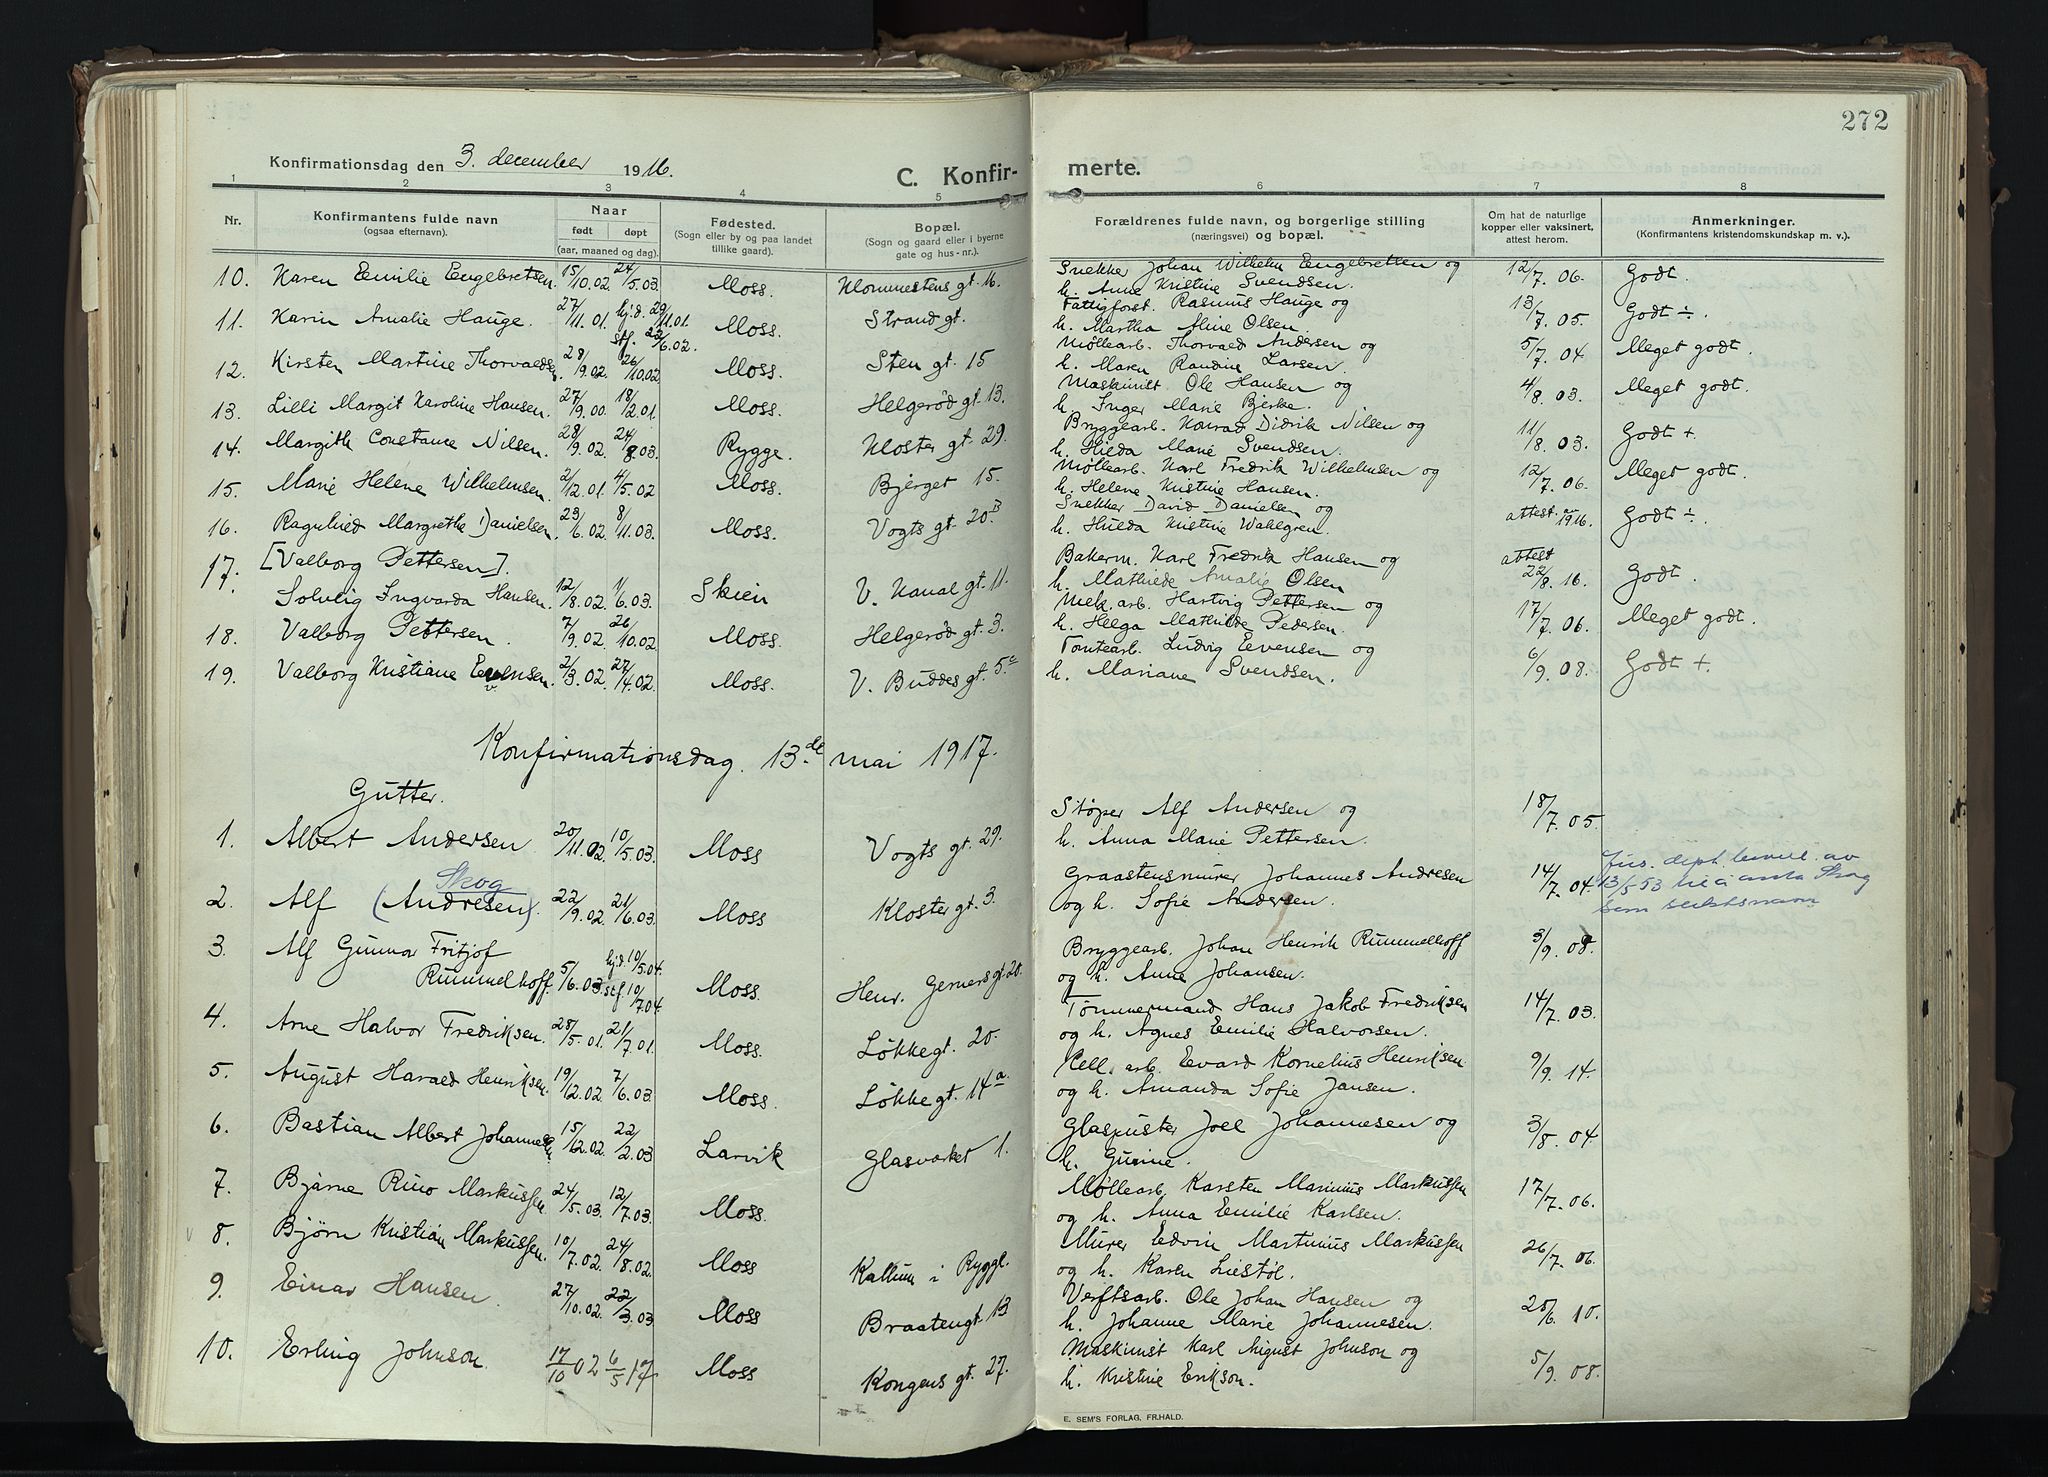 272
Konfirmationsdag den 3. december 1916.
C. Konfir-
merte.
1 2 3 4 5 6 7 8
Nr.
Konfirmantens fulde navn
(ogsaa efternavn).
Naar
født
døpt
(aar, maaned og dag).
Fødested.
(Sogn eller by og paa landet
tillike gaard).
Bopæl.
(Sogn og gaard eller i byerne
gate og hus-nr.).
Forældrenes fulde navn, og borgerlige stilling
(næringsvei) og bopæl.
Om hat de naturlige
kopper eller vaksinert,
attest herom.
Anmerkninger.
(Konfirmantens kristendomskundskap m. v.).
10. Karen Emilie Engebretsen. 15/10.02. 24/5.03. Moss. Klommestens gt. 16. Snekker Johan Wilhelm Engebretsen og
h. Anne Kristine Svendsen. 12/7.06. Godt.
11. Karin Amalie Hauge. 27/11.01. hj.d. 29/11.01. stf. 22/6.02. Moss. Strand gt. Fattigforst. Rasmus Hauge og
h. Martha Mine Olsen. 13/7.05. Godt ÷.
12. Kirsten Martine Thorvaldsen 28/9.02. 26/10.02 Moss. Sten gt. 15 Møllearb. Thorvald Andersen og
h. Maren Randine Larsen. 5/7.04 Meget godt.
13. Lilli Margit Karoline Hansen. 27/9.00. 18/2.01. Moss. Helgerød gt. 13. Maskinist Ole Hansen og
h. Inger Marie Bjerke. 4/8.03. Meget godt.
14. Margith Constance Nilsen. 28/9.02. 24/8.03. Rygge. Kloster gt. 29. Bryggearb. Konrad Didrik Nilsen og
h. Hilda Marie Svendsen. 11/8.03. Godt +.
15. Marie Helene Wilhelmsen. 2/12.01. 4/5.02 Moss. Bjerget 15. Møllearb. Karl Fredrik Wilhelmsen og
h. Helene Kristine Hansen. 12/7.06. Meget godt.
16. Ragnhild Margrethe Danielsen. 23/6.02. 8/11.03. Moss. Vogts gt. 20.B Snekker David Danielsen og
h. Hulda Kristine Wahlgren. attest av 1916. Godt ÷.
17. [Valborg Pettersen].
Solveig Ingvarda Hansen. 12/8.02. 1/6.03. Skien V. Kanal gt. 11. Bakerm. Karl Fredrik Hansen og
h. Mathilde Amalie Olsen attest 22/8.16. Godt.
18. Valborg Pettersen. 7/9.02. 26/10.02 Moss. Helgerød gt. 3. Mek. arb. Hartvig Pettersen og
h. Helga Mathilde Pedersen. 17/7.06. Meget godt.
19. Valborg Kristiane Evensen. 2/3.02. 27/4.02. Moss. V. Buddes gt. 5.c Tomtearb. Ludvig Evensen og
h. Mariane Svendsen. 6/9.08. Godt +.
Konfirmationsdag. 13.de mai 1917.
Gutter.
1. Albert Andersen 20/11.02. 10/5.03. Moss Vogts gt. 29. Støper Alf Andersen og
h. Anna Marie Pettersen. 18/7.05.
Skog
2. Alf (Andresen). 22/9.02. 21/6.03. Moss Kloster gt. 3. Graastensmurer Johannes Andresen
og h. Sofie Andersen. 14/7.04. Jus. dept. bevill. av
13/5 53 til å anta Skog
som slektsnavn
3. Alf Gunnar Fritjof
Rummelhoff. 5/6.03. hj.d. 10/5.04. stf 10/7.04. Moss. Henr. Gerners gt. 20. Bryggearb. Johan Henrik Rummelhoff
og h. Anne Johansen. 3/9.08.
4. Arne Halvor Fredriksen. 28/5.01. 21/7.01. Moss. Løkkegt. 20. Tømmermand Hans Jakob Fredriksen
og h. Agnes Emilie Halvorsen. 14/7.03.
5. August Harald Henriksen. 19/12.02. 7/6.03. Moss. Løkkegt. 14 a. Cell. arb. Edvard Kornelius Henriksen
og h. Amanda Sofie Jansen. 9/9.14.
6. Bastian Albert Johannesen 15/12.02. 22/2.03 Larvik Glasværket 1. Glaspuster Joel Johannesen og
h. Gurine. 3/8.04.
7. Bjarne Rino Markussen. 24/5.03. 12/7.03. Moss. Møllearb. Karsten Marinius Markussen
og h. Anna Emilie Karlsen. 17/7.06.
8. Bjørn Kristian Markussen. 10/7.02. 24/8.02. Moss Kallum i Rygge. Murer Edvin Martinius Markussen
og h. Karen Liestøl. 26/7.06.
9. Einar Hansen. 27/10.02. 22/3.03. Moss Braatengt 13 Verftsarb. Ole Johan Hansen og
h. Johanne Marie Johannesen. 25/6.10.
10. Erling Johnson. 17/10 02 6/5 17 Moss Kongens gt. 27. Maskinist Karl August Johnson og
h. Kristine Erikson. 5/9.08.
E. SEM'S FORLAG, FR.HALD.